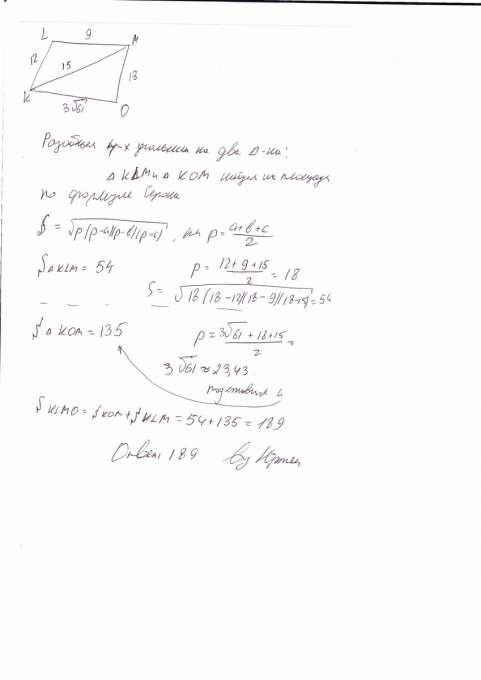 L 9 M
12 15 18
K 3√61 O
Разобьем 4-х угольник на два Δ-ка:
Δ KLM и Δ KOM найдем их площадь
по формуле Герона
S = √p(p-a)(p-b)(p-c), где p = a+b+c/2
S Δ KLM = 54 p = 12+9+15/2 = 18
S = √18(18-12)(18-9)(18-15) = 54
S Δ KOM = 135 p = 3√61+18+15/2 =
3√61 ≈ 23,43.
подставим
S KLMO = S KOM + S KLM = 54+135 = 189
Ответ 189 by